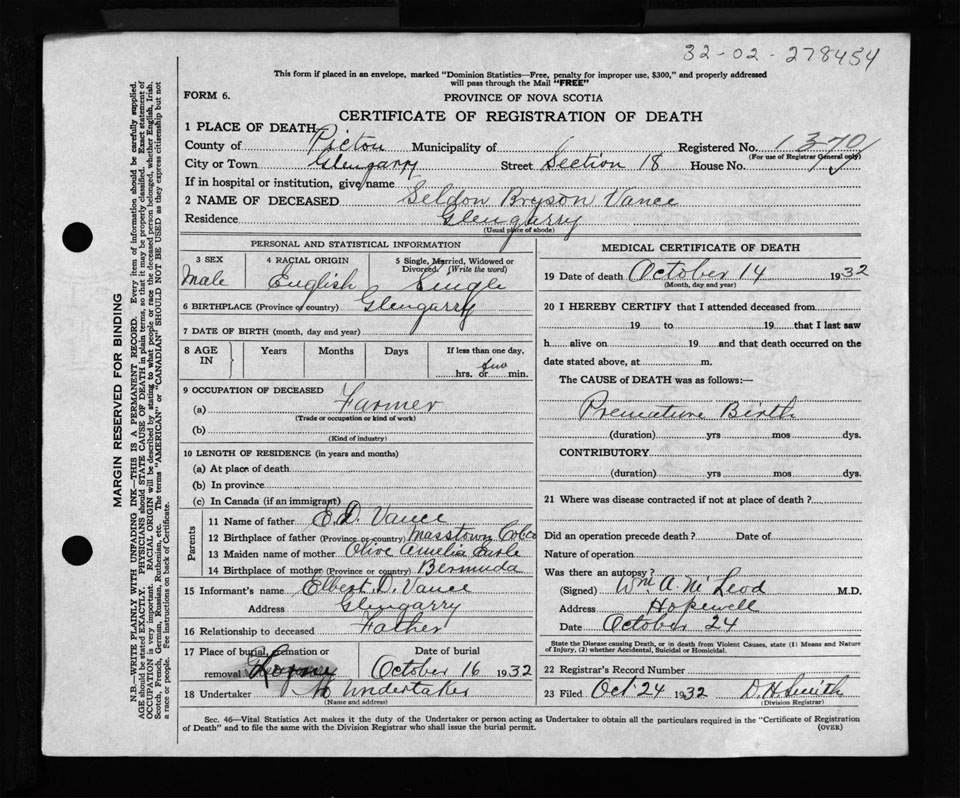 32-02-278454
This form if placed in an envelope, marked "Dominion Statistics—Free, penalty for improper use, $300," and properly addressed
will pass through the Mail "FREE"
FORM 6.
PROVINCE OF NOVA SCOTIA
CERTIFICATE OF REGISTRATION OF DEATH
1 PLACE OF DEATH
County of Pictou Municipality of Registered No. 1370
(For use of Registrar General only)
City or Town Glengarry Street Section 18 House No.
If in hospital or institution, give name
2 NAME OF DECEASED Seldon Bryson Vance
Residence Glengarry
(Usual place of abode)
PERSONAL AND STATISTICAL INFORMATION
3 SEX 4 RACIAL ORIGIN 5 Single, Married, Widowed or Divorced. (Write the word)
Male English Single
6 BIRTHPLACE (Province or country) Glengarry
7 DATE OF BIRTH (month, day and year)
8 AGE IN Years Months Days If less than one day,
hrs. or few min.
9 OCCUPATION OF DECEASED
(a) Farmer
(Trade or occupation or kind of work)
(b)
(Kind of industry)
10 LENGTH OF RESIDENCE (in years and months)
(a) At place of death
(b) In province
(c) In Canada (if an immigrant)
Parents
11 Name of father E.D. Vance
12 Birthplace of father (Province or country) Masstown Colco
13 Maiden name of mother Olive Amelia
14 Birthplace of mother (Province or country) Bermuda
15 Informant's name Elbert D. Vance
Address Glengarry
16 Relationship to deceased Father
17 Place of burial, cremation or removal Date of burial
October 16 1932
18 Undertaker No Undertaker
(Name and address)
MEDICAL CERTIFICATE OF DEATH
19 Date of death October 14 1932
(Month, day and year)
20 I HEREBY CERTIFY that I attended deceased from
19 to 19 that I last saw
h alive on 19 and that death occurred on the
date stated above, at m.
The CAUSE of DEATH was as follows:—
Premature Birth
(duration) yrs mos dys.
CONTRIBUTORY.
(duration) yrs mos dys.
21 Where was disease contracted if not at place of death ?
Did an operation precede death ? Date of
Nature of operation
Was there an autopsy ?
(Signed) Wm A. McLeod M.D.
Address Hopewell
Date October 24
State the Disease causing Death, or in death from Violent Causes, state (1) Means and Nature
of Injury, (2) whether Accidental, Suicidal or Homicidal.
22 Registrar's Record Number
23 Filed Oct. 24 1932 D. H. Smith
(Division Registrar)
Sec. 46—Vital Statistics Act makes it the duty of the Undertaker or person acting as Undertaker to obtain all the particulars required in the "Certificate of Registration
of Death" and to file the same with the Division Registrar who shall issue the burial permit. (OVER)
MARGIN RESERVED FOR BINDING
N.B.—WRITE PLAINLY WITH UNFADING INK—THIS IS A PERMANENT RECORD. Every item of information should be carefully supplied.
AGE should be stated EXACTLY. PHYSICIANS should STATE CAUSE OF DEATH in plain terms, so that it may be properly classified. Exact statement of
OCCUPATION is very important. RACIAL ORIGIN will be described by stating to what people or race the deceased person belonged, whether English, Irish,
Scotch, French, German, Russian, Ruthenian, etc. The terms "AMERICAN" or "CANADIAN" SHOULD NOT BE USED as they express citizenship but not
a race or people. See instructions on back of Certificate.